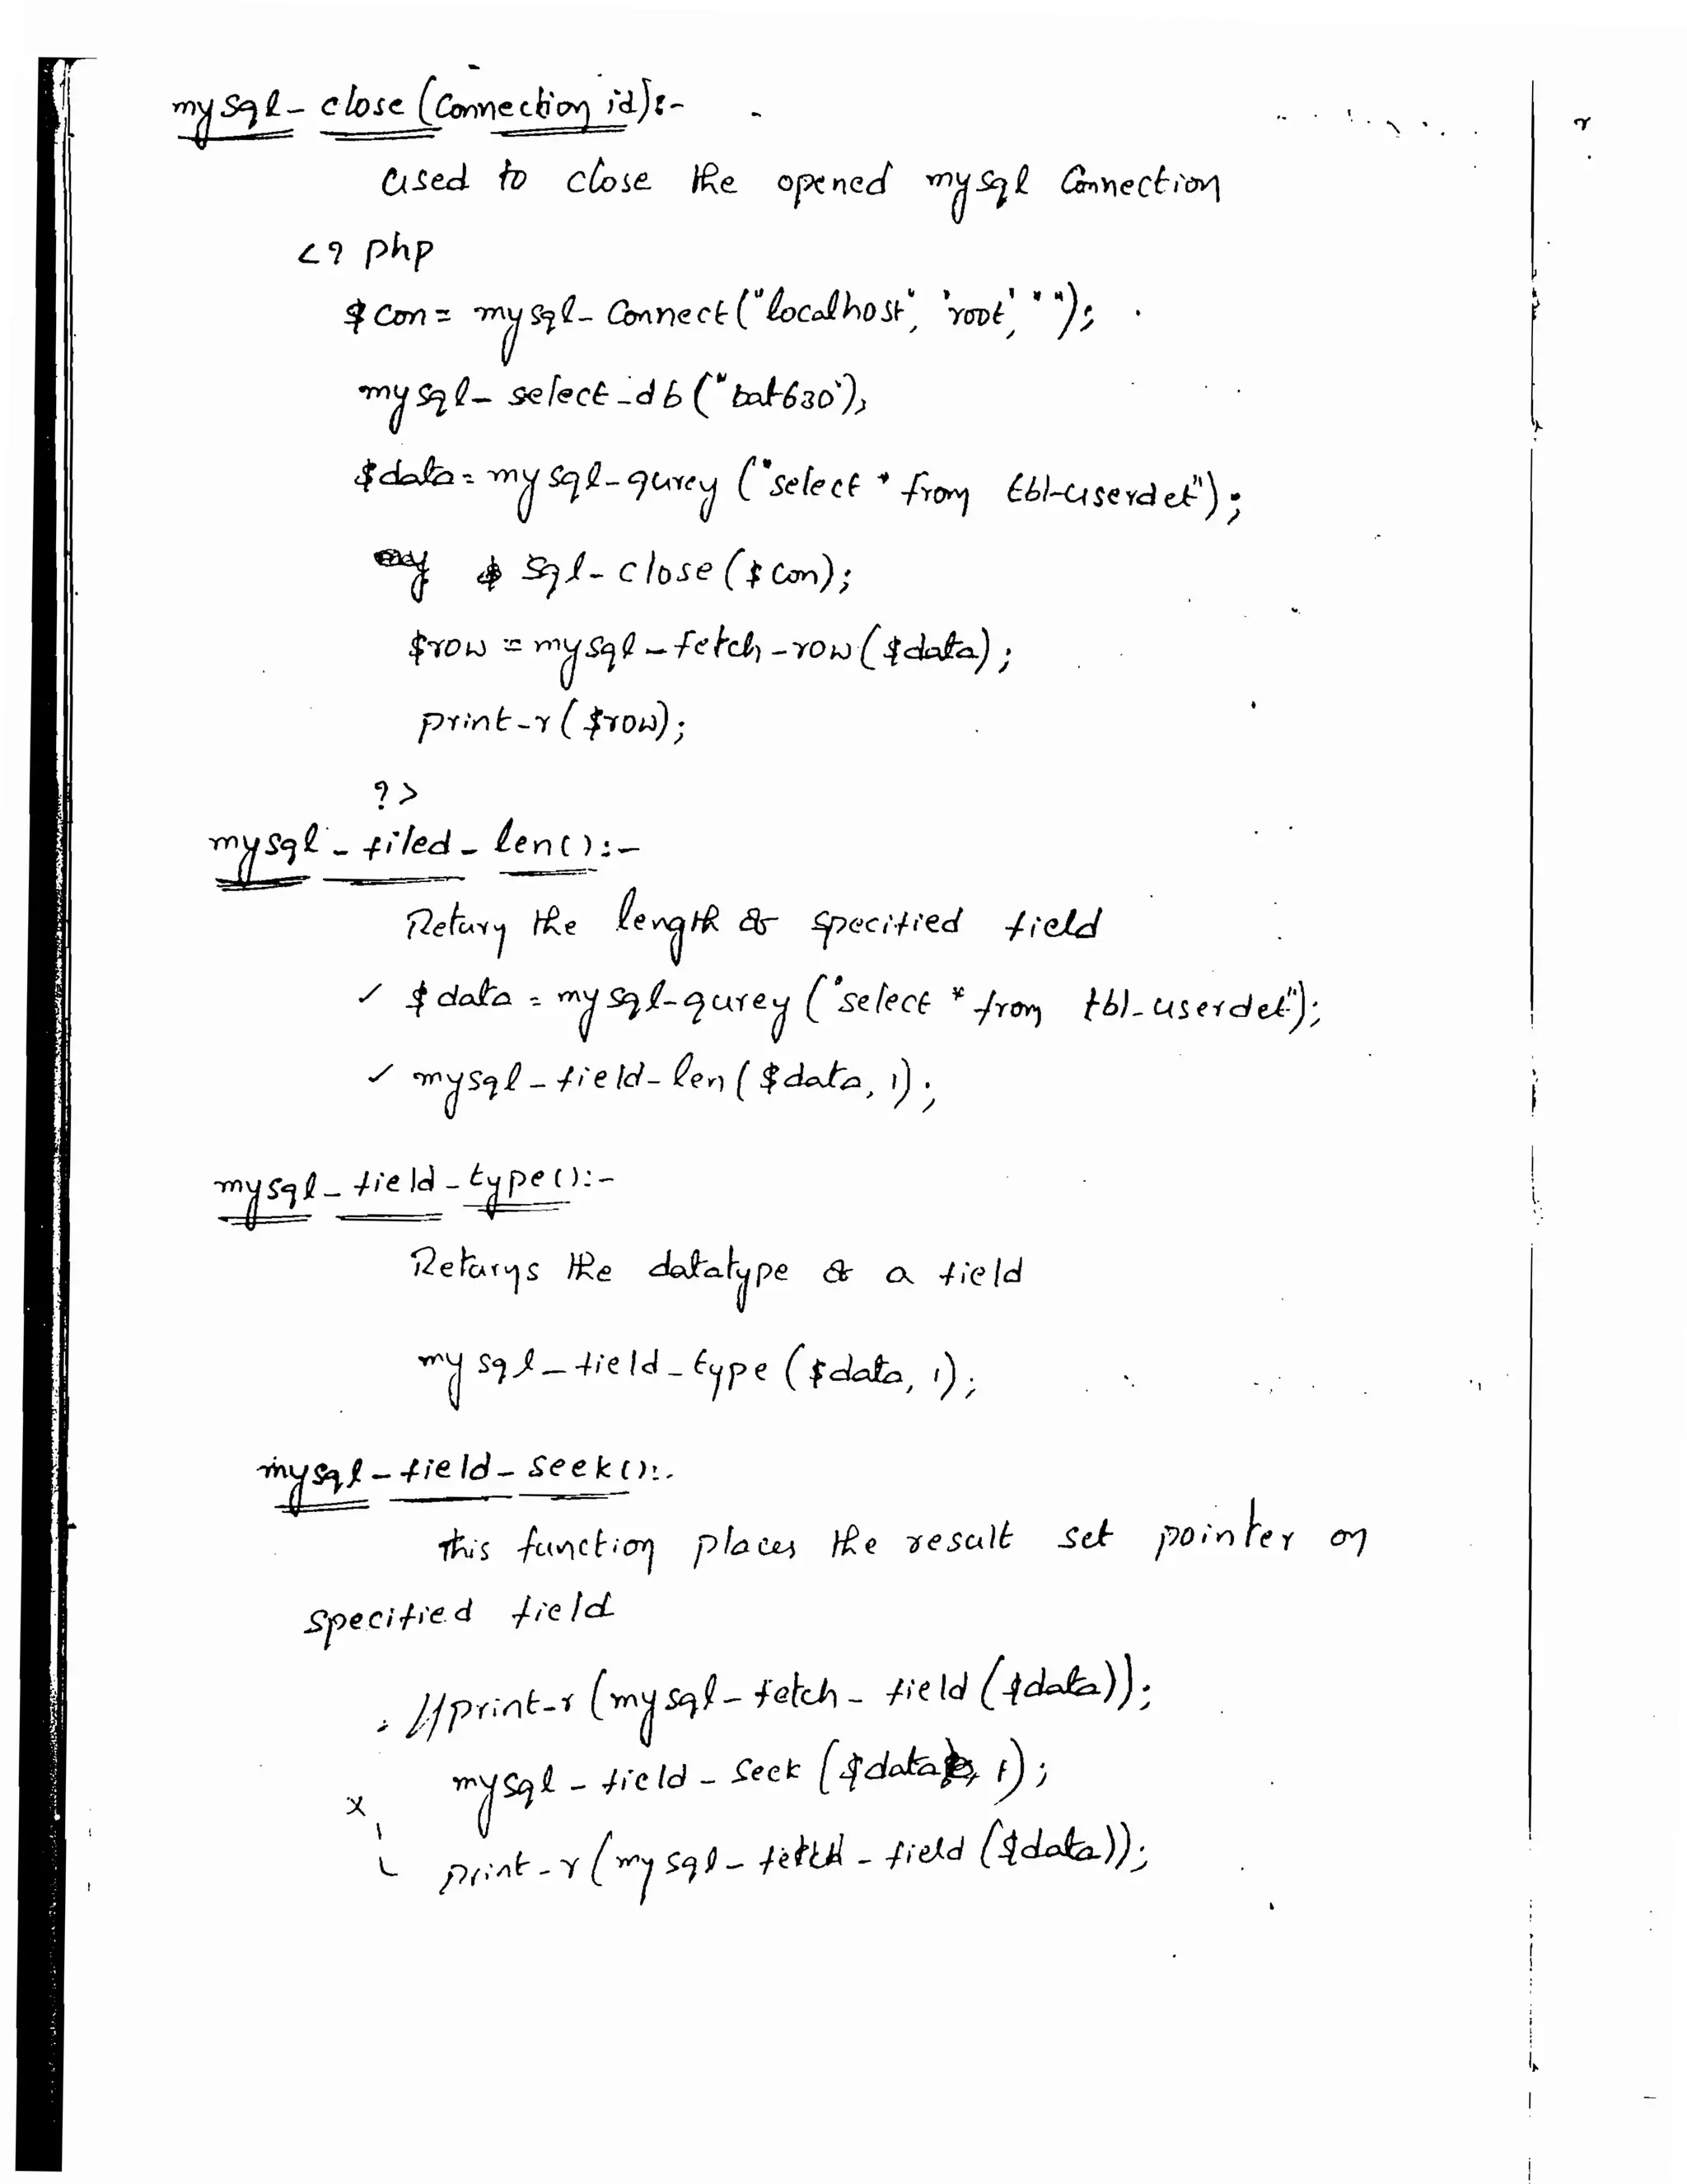 mysql_close (Connection id):-
Used to close the opened mysql Connection
<? php
$con = mysql_connect("localhost", 'root', " ");
mysql_select_db ("bat630");
$data = mysql_qurey ("select * from tbl_userdet");
my sql_close ($con);
$row = mysql_fetch_row ($data);
print_r ($row);
?>
mysql_filed_len():-
Return the length of specified field
✓ $data = mysql_qurey ("select * from tbl_userdet");
✓ mysql_field_len ($data, 1);
mysql_field_type():-
Returns the datatype of a field
mysql_field_type ($data, 1);
mysql_field_seek():-
This function places the result set pointer on
specified field
//print_r (mysql_fetch_field ($data));
mysql_field_seek ($data, 1);
print_r (mysql_fetch_field ($data));